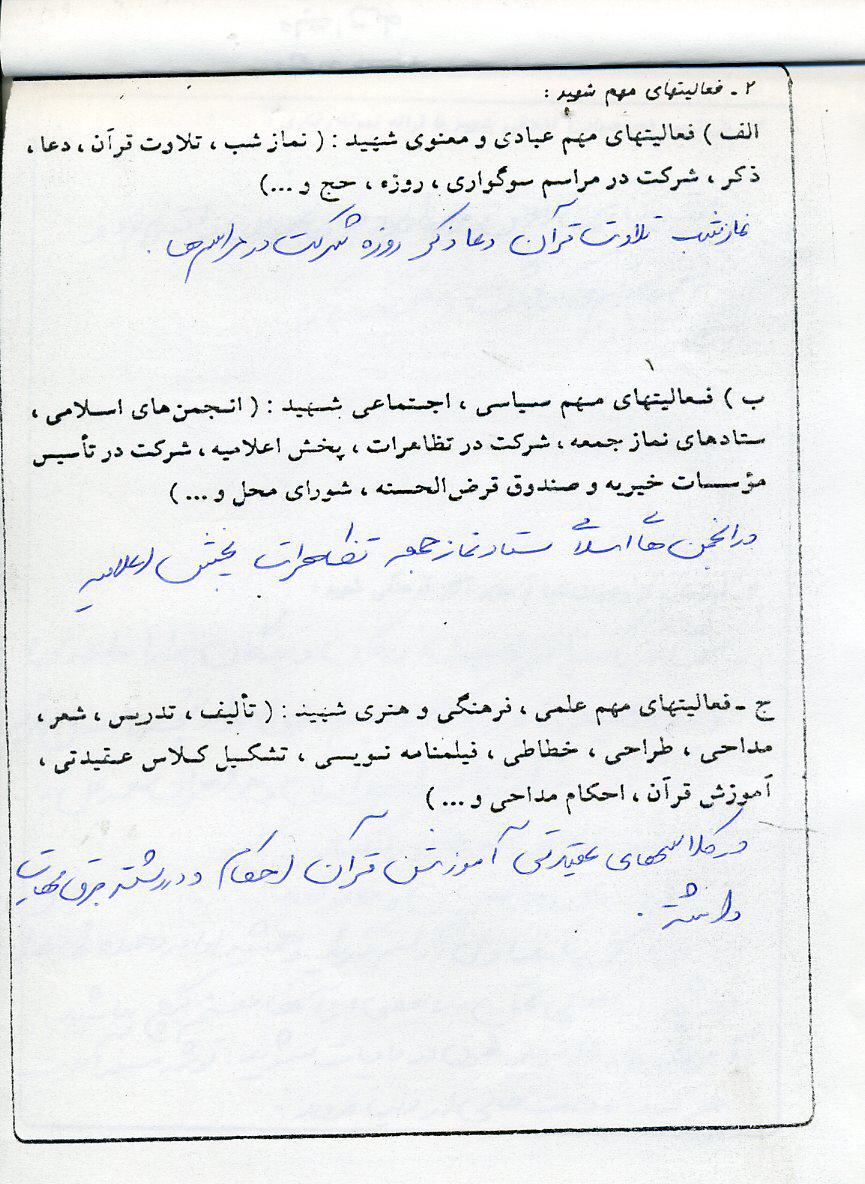 ۲ ـ فعالیتهای مهم شهید :
الف ) فعالیتهای مهم عبادی و معنوی شهید : ( نماز شب ، تلاوت قرآن ، دعا ،
ذکر ، شرکت در مراسم سوگواری ، روزه ، حج و ...)
نماز شب تلاوت قرآن دعا ذکر روزه شرکت در مراسم ها .
ب ) فعالیتهای مهم سیاسی ، اجتماعی شهید : ( انجمن‌های اسلامی ،
ستادهای نماز جمعه ، شرکت در تظاهرات ، پخش اعلامیه ، شرکت در تأسیس
مؤسسات خیریه و صندوق قرض‌الحسنه ، شورای محل و ... )
در انجمن های اسلامی ستاد نماز جمعه تظاهرات پخش اعلامیه
ج ـ فعالیتهای مهم علمی ، فرهنگی و هنری شهید : ( تألیف ، تدریس ، شعر ،
مداحی ، طراحی ، خطاطی ، فیلمنامه نویسی ، تشکیل کلاس عقیدتی ،
آموزش قرآن ، احکام مداحی و ... )
در کلاسهای عقیدتی آموزش قرآن احکام و در رشته برق مهارت
داشته .